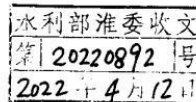 水利部淮委收文
第 20220892 号
2022年4月12日